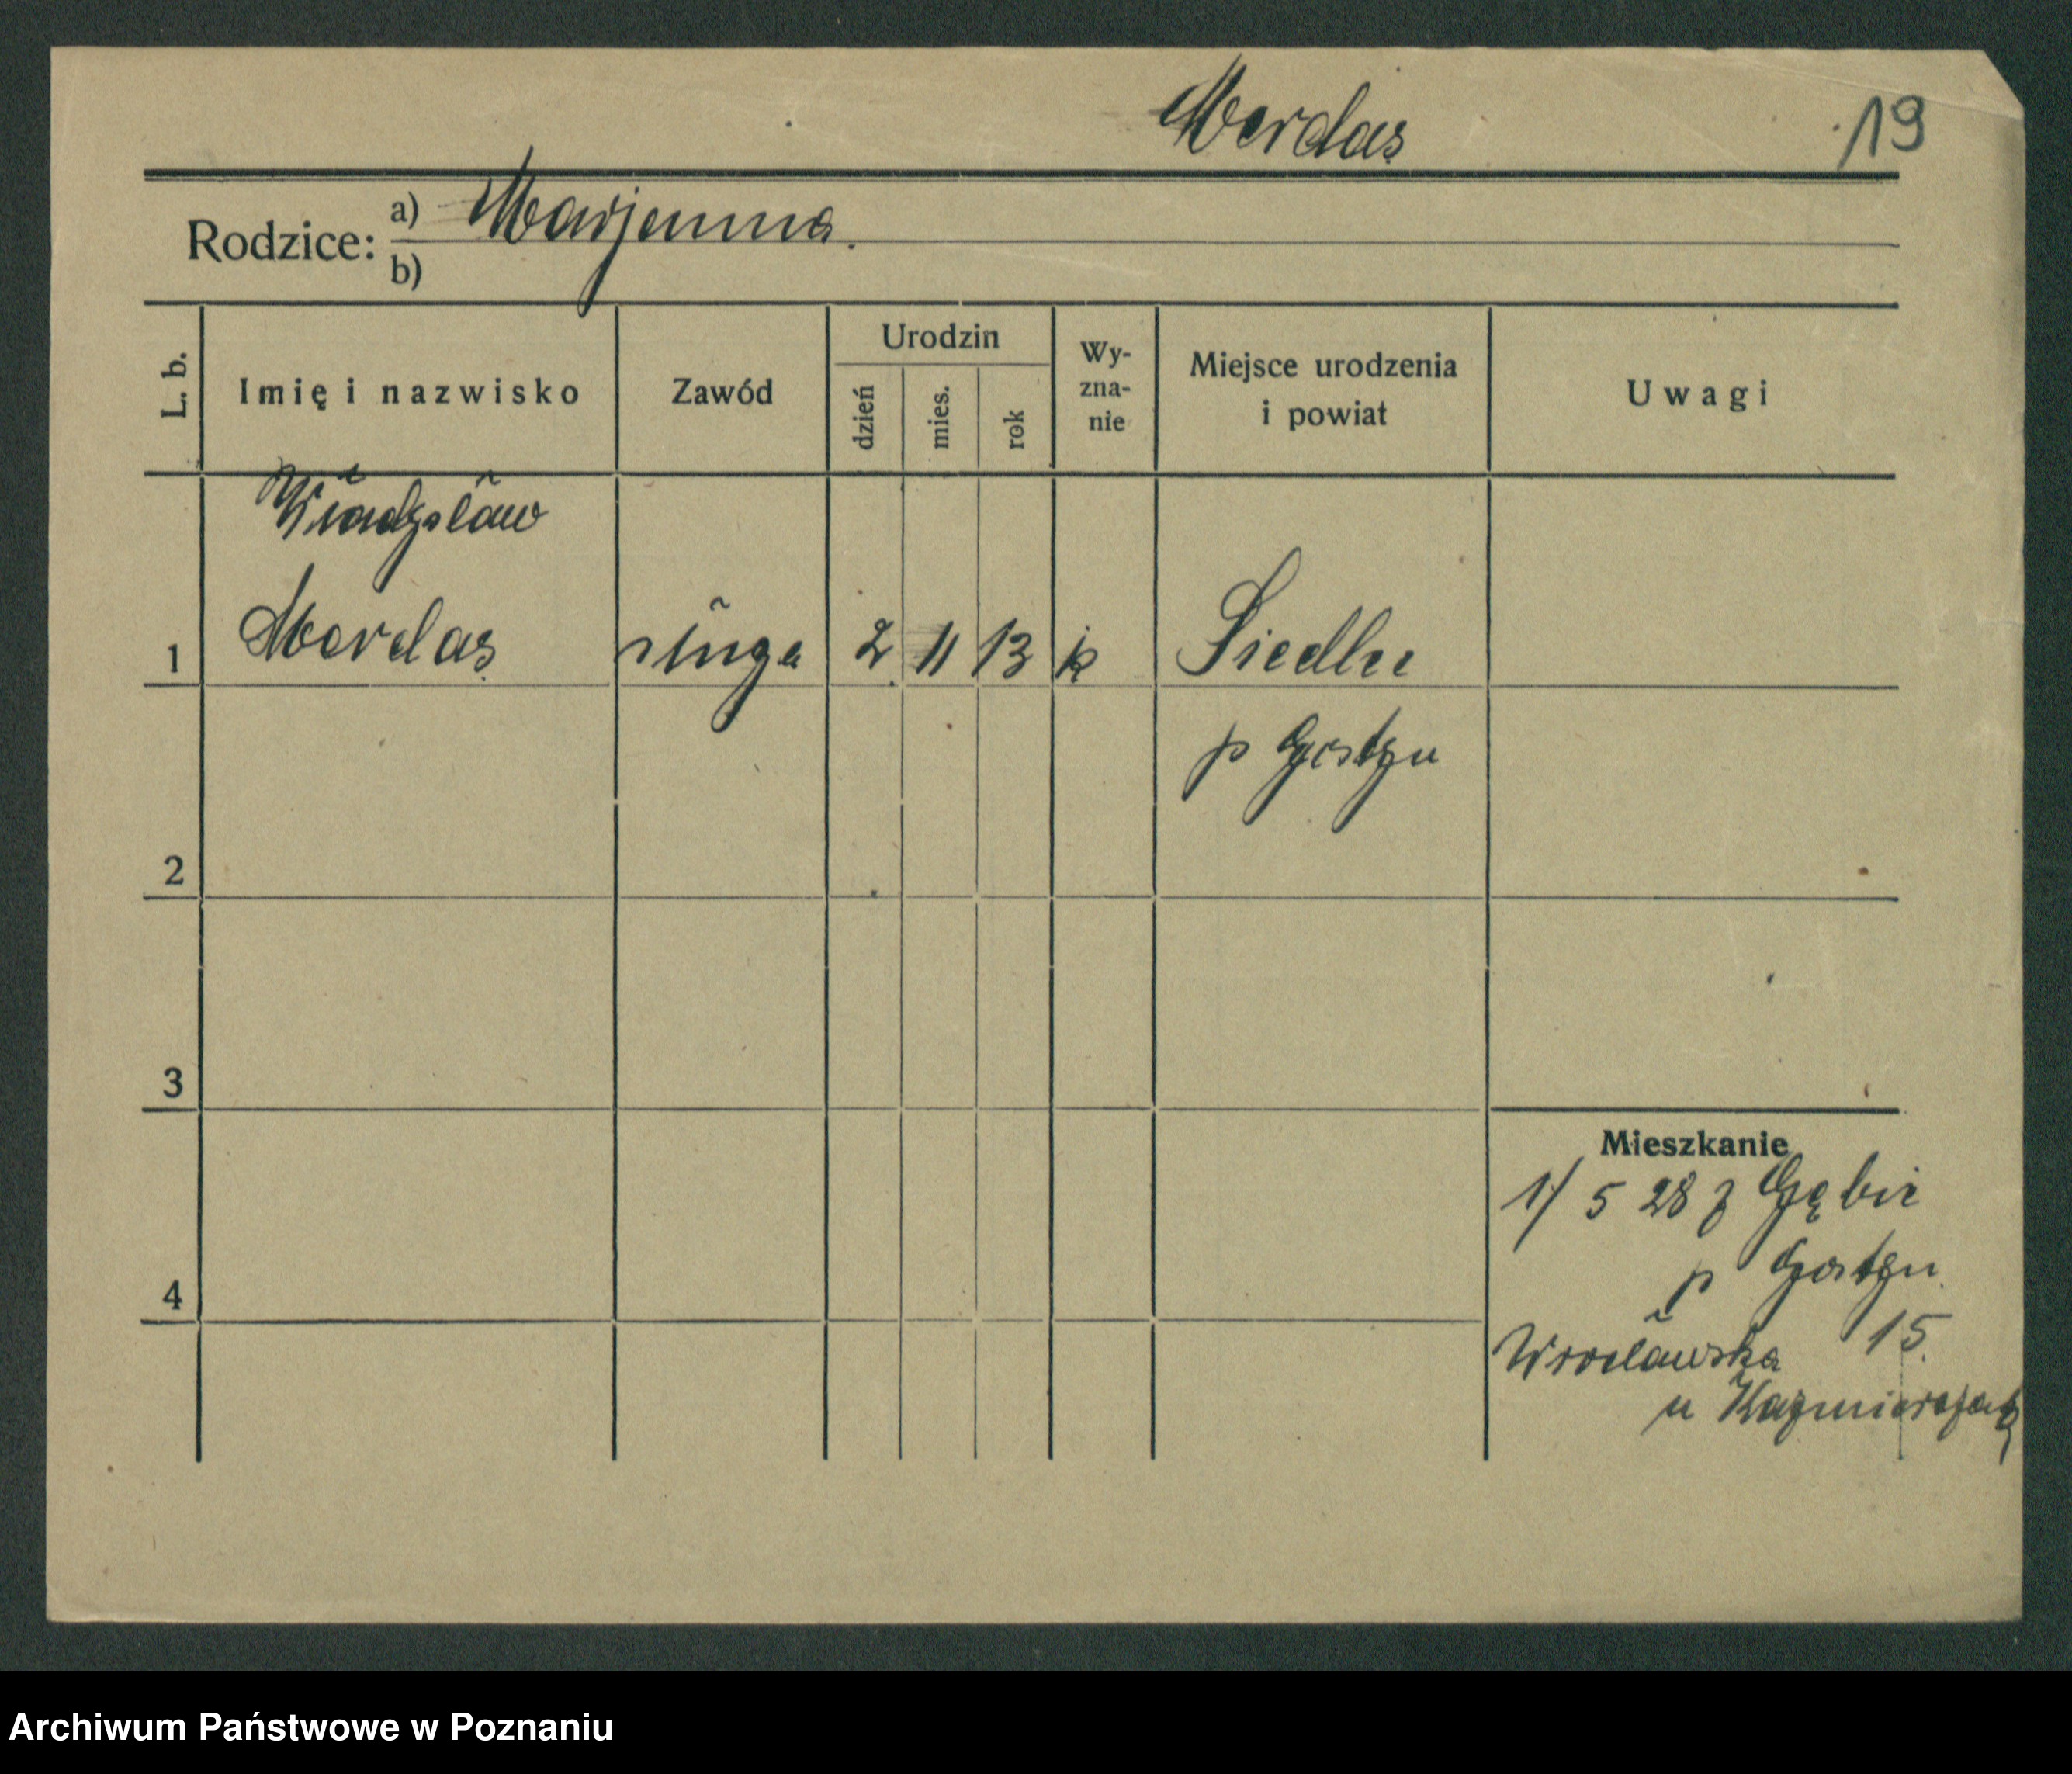 Merdas 19
Rodzice: a) Marjanna.
b)
L. b. Imię i nazwisko Zawód Urodzin dzień mies. rok Wy- zna- nie Miejsce urodzenia i powiat Uwagi
Władysław
1 Merdas sługa 2 11 13 k Siedlec
p Gostyń
2
3
Mieszkanie
1/ 5 28 z Gębic
p Gostyń
4
Wrocławska 15
u Kaźmierczak
Archiwum Państwowe w Poznaniu